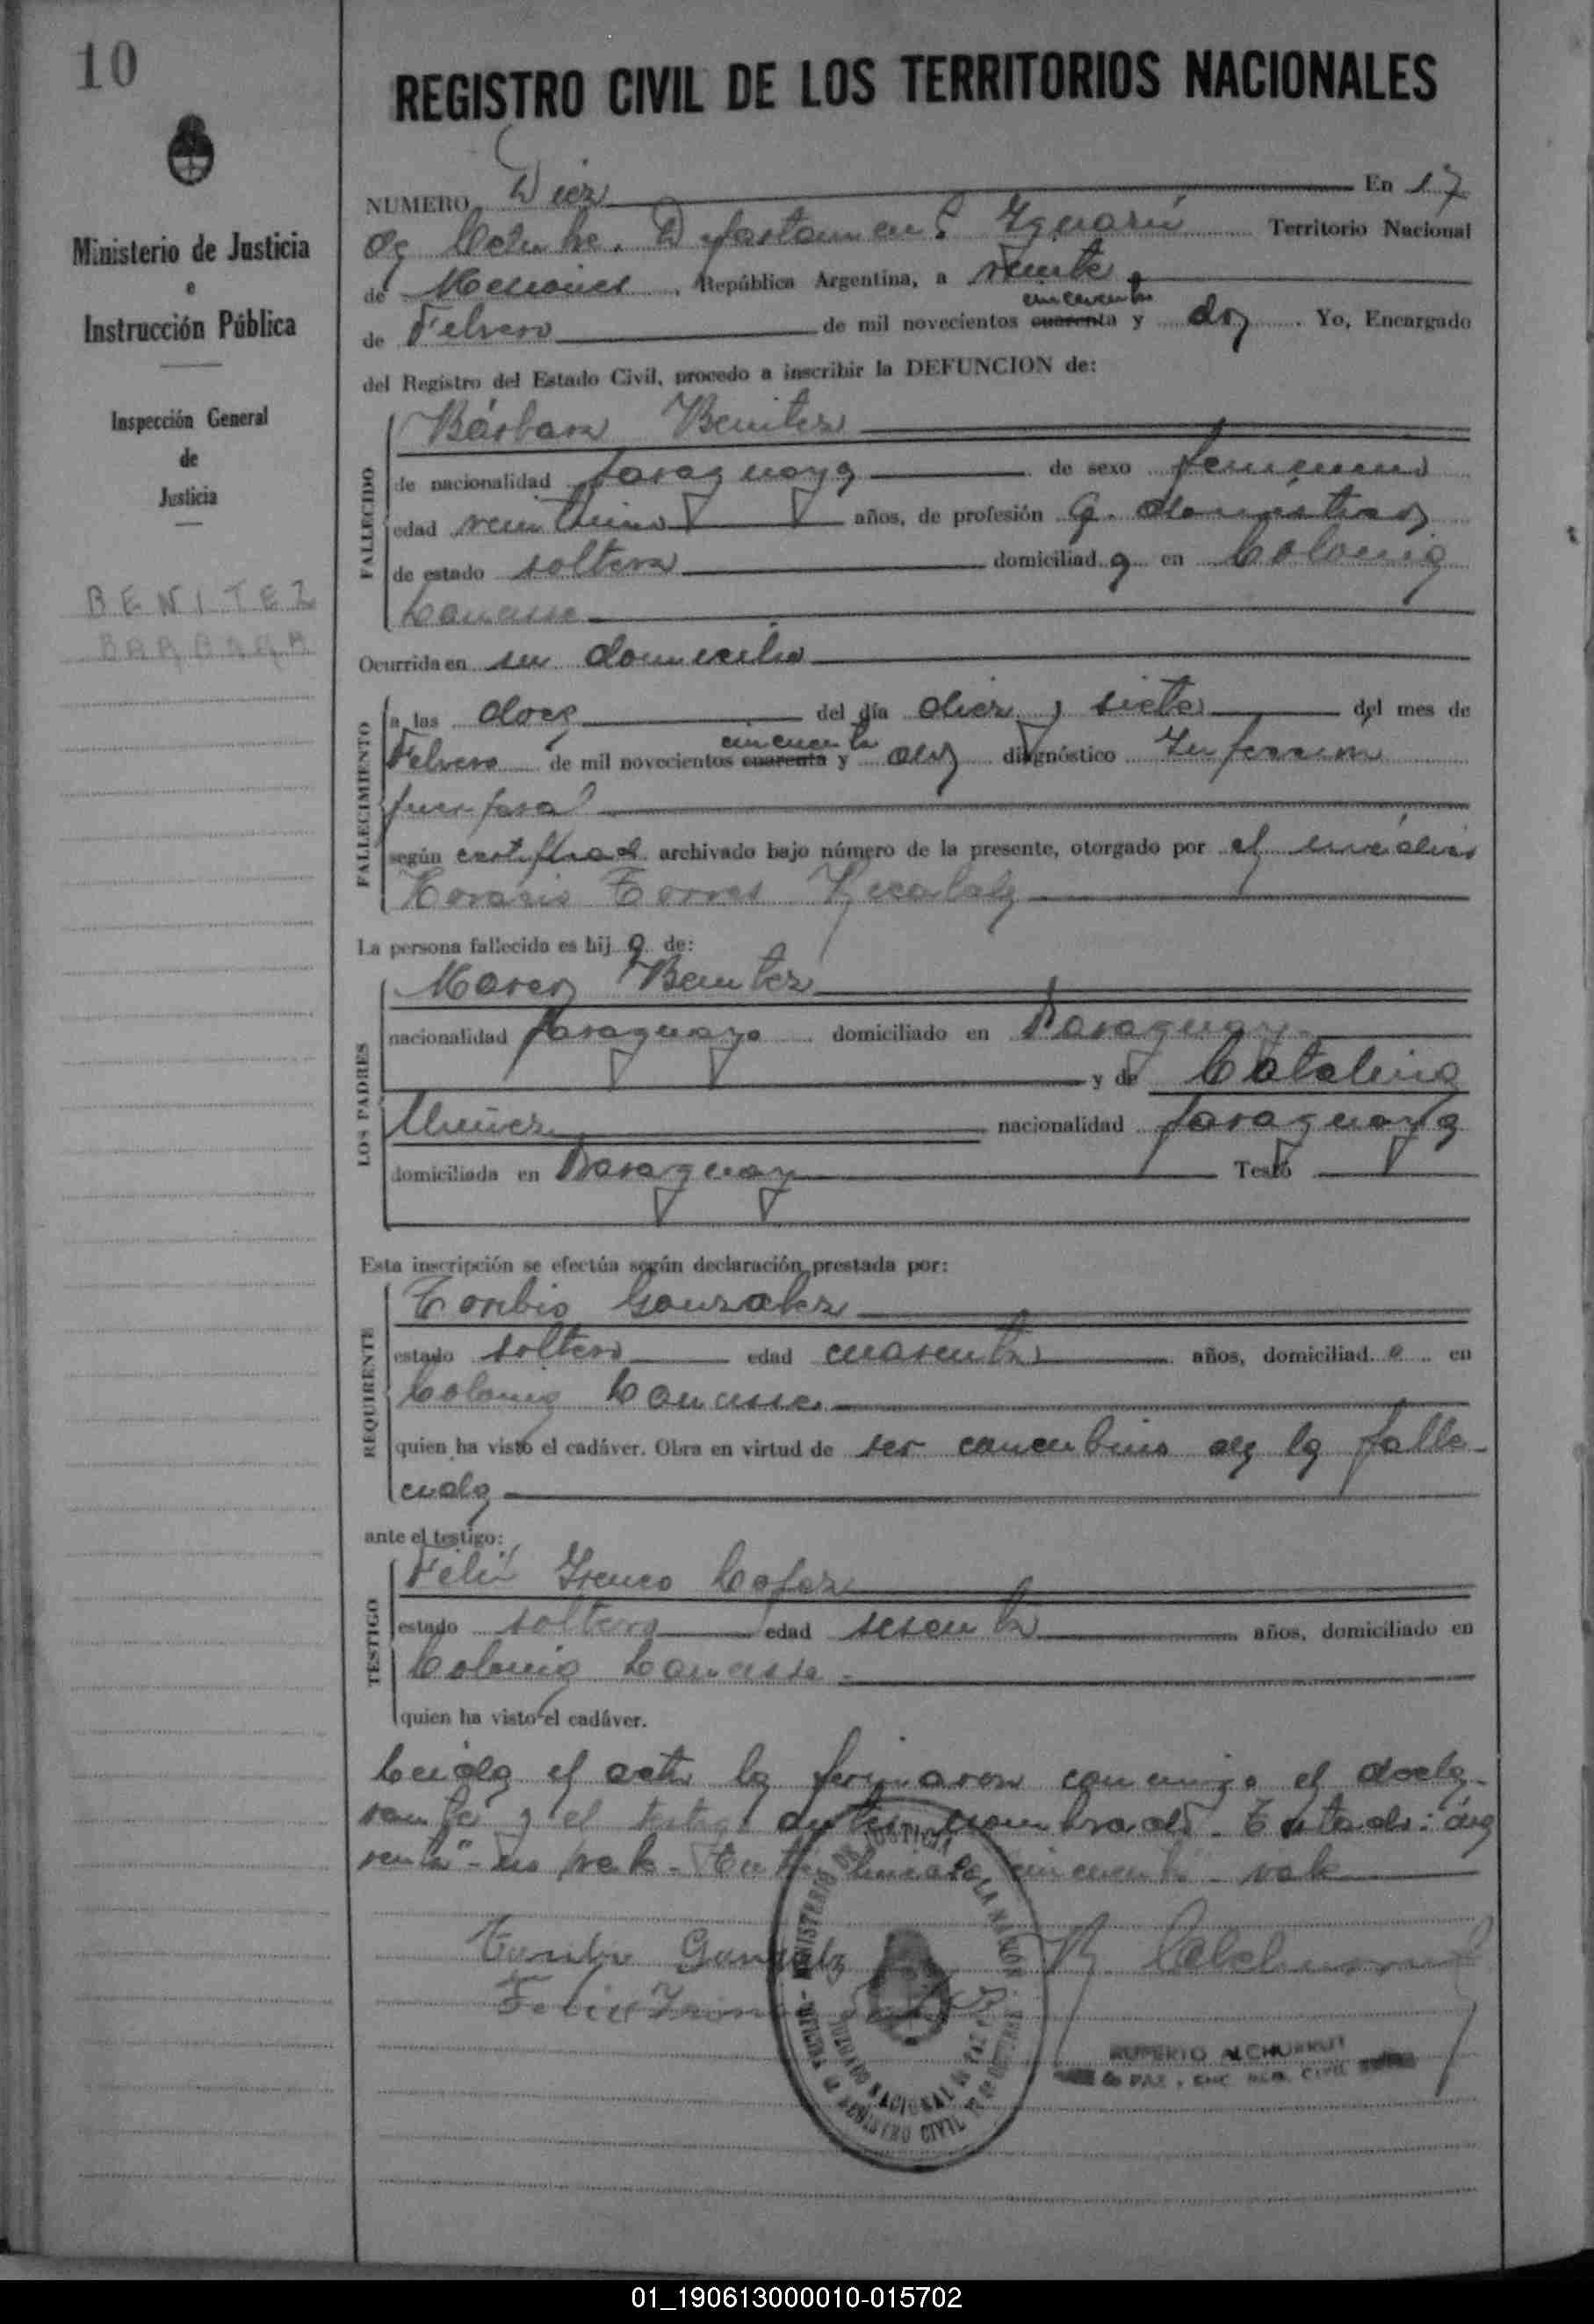 10
Ministerio de Justicia
e
Instrucción Pública
Inspección General
de
Justicia
BENITEZ
BARBARA
REGISTRO CIVIL DE LOS TERRITORIOS NACIONALES
NUMERO Diez En 17
de Octubre. Departamento Iguazú Territorio Nacional
de Misiones, República Argentina, a veinte
cincuenta
de Febrero de mil novecientos cuarenta y dos. Yo, Encargado
del Registro del Estado Civil, procedo a inscribir la DEFUNCION de:
FALLECIDO
Bárbara Benitez
de nacionalidad paraguaya de sexo femenino
edad veintiuno años, de profesión q. domésticos
de estado soltera domiciliada en Colonia
Lanusse
Ocurrida en su domicilio
FALLECIMIENTO
a las doce del día diez y siete del mes de
cincuenta
Febrero de mil novecientos cuarenta y dos diagnóstico Infección
puerperal
según certificado archivado bajo número de la presente, otorgado por el médico
Horacio Torres
La persona fallecida es hija de:
LOS PADRES
Marcos Benitez
nacionalidad paraguayo domiciliado en Paraguay
y de Catalina
nacionalidad paraguaya
domiciliada en Paraguay Testó
Esta inscripción se efectúa según declaración prestada por:
REQUIRENTE
Toribio Gonzalez
estado soltero edad cuarenta años, domiciliado en
Colonia Lanusse
quien ha visto el cadáver. Obra en virtud de ser concubino de la falle-
cida
ante el testigo:
TESTIGO
Félix Ireneo
estado soltero edad sesenta años, domiciliado en
Colonia Lanusse
quien ha visto el cadáver.
Leida el acta la firmaron conmigo el decla-
rante y el testigo antes nombrado. Testado: "cua
renta" - no vale - Entre lineas "cincuenta" - vale
Toribio Gonzalez
Felix
RUPERTO ALCHURRUT
DE PAZ, ENC. REG. CIVIL
01_190613000010-015702